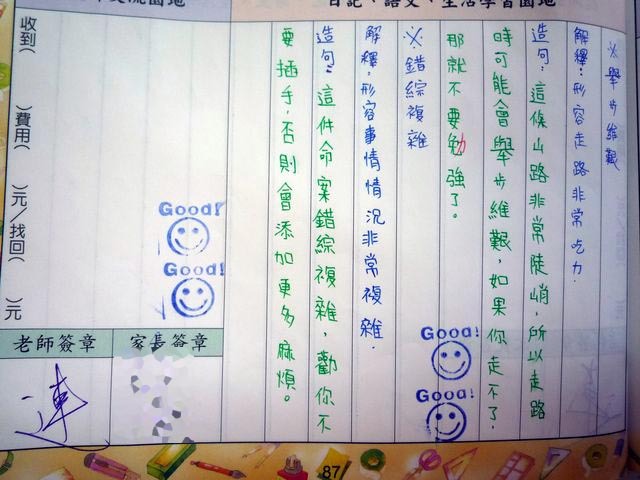 日記、語文、生活學習園地
※舉步維艱
解釋：形容走路非常吃力.
造句：這條山路非常陡峭，所以走路
時可能會舉步維艱，如果你走不了，
那就不要勉強了。
※錯綜複雜
解釋：形容事情情況非常複雜.
造句：這件命案錯綜複雜，勸你不
要插手，否則會添加更多麻煩。
Good!
Good!
Good!
Good!
交流園地
收到( )費用( )元/找回( )元
家長簽章
老師簽章
連
87